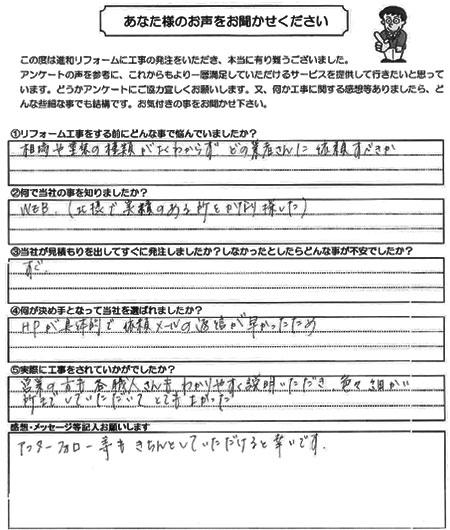 あなた様のお声をお聞かせください
この度は進和リフォームに工事の発注をいただき、本当に有り難うございました。
アンケートの声を参考に、これからもより一層満足していただけるサービスを提供して行きたいと思って
います。どうかアンケートにご協力宜しくお願いします。又、何か工事に関する感想等ありましたら、ど
んな些細な事でも結構です。お気付きの事をお聞かせ下さい。
①リフォーム工事をする前にどんな事で悩んでいましたか？
相場や業の種類がよくわからず どの業者さんに依頼すべきか
②何で当社の事を知りましたか？
WEB.（で実績のある所をかなり探した）
③当社が見積もりを出してすぐに発注しましたか？しなかったとしたらどんな事が不安でしたか？
すぐ.
④何が決め手となって当社を選ばれましたか？
HPが具体的で 依頼メールの返信が早かったため
⑤実際に工事をされていかがでしたか？
営業の方も各職人さんもわかりやすく説明いただき、色々細かい
所までしていただいて とても上がった
感想・メッセージ等記入お願いします
アフターフォロー等もきちんとしていただけると幸いです.